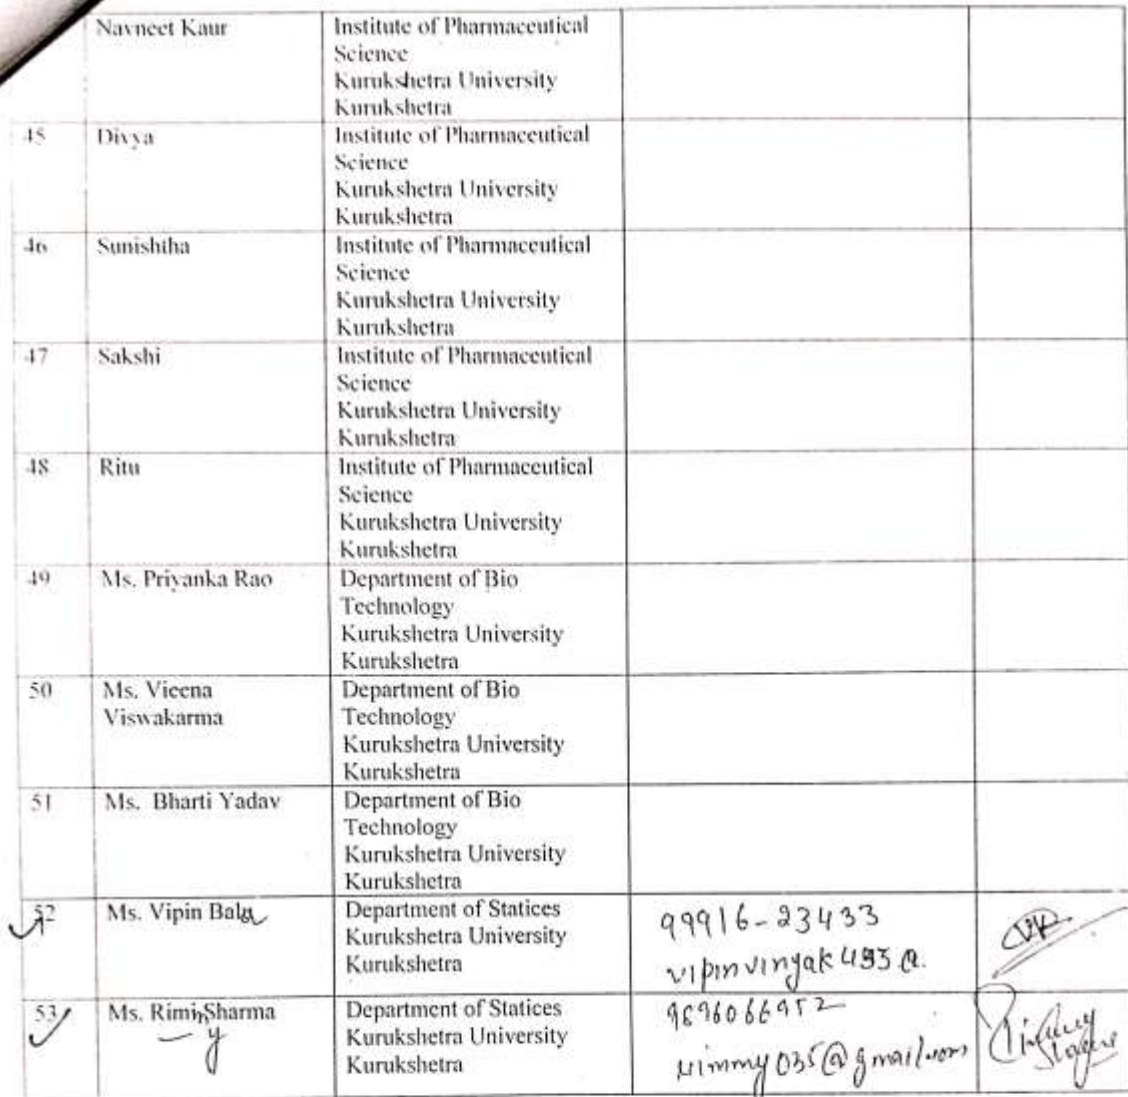 Navneet Kaur Institute of Pharmaceutical
Science
Kurukshetra University
Kurukshetra
45 Divya Institute of Pharmaceutical
Science
Kurukshetra University
Kurukshetra
46 Sunishtha Institute of Pharmaceutical
Science
Kurukshetra University
Kurukshetra
47 Sakshi Institute of Pharmaceutical
Science
Kurukshetra University
Kurukshetra
48 Ritu Institute of Pharmaceutical
Science
Kurukshetra University
Kurukshetra
49 Ms. Priyanka Rao Department of Bio
Technology
Kurukshetra University
Kurukshetra
50 Ms. Vieena Department of Bio
Viswakarma Technology
Kurukshetra University
Kurukshetra
51 Ms. Bharti Yadav Department of Bio
Technology
Kurukshetra University
Kurukshetra
52 Ms. Vipin Bala Department of Statices 99916-23433
Kurukshetra University
Kurukshetra
53 Ms. Rimmy Sharma Department of Statices 9896066952
Kurukshetra University
Kurukshetra